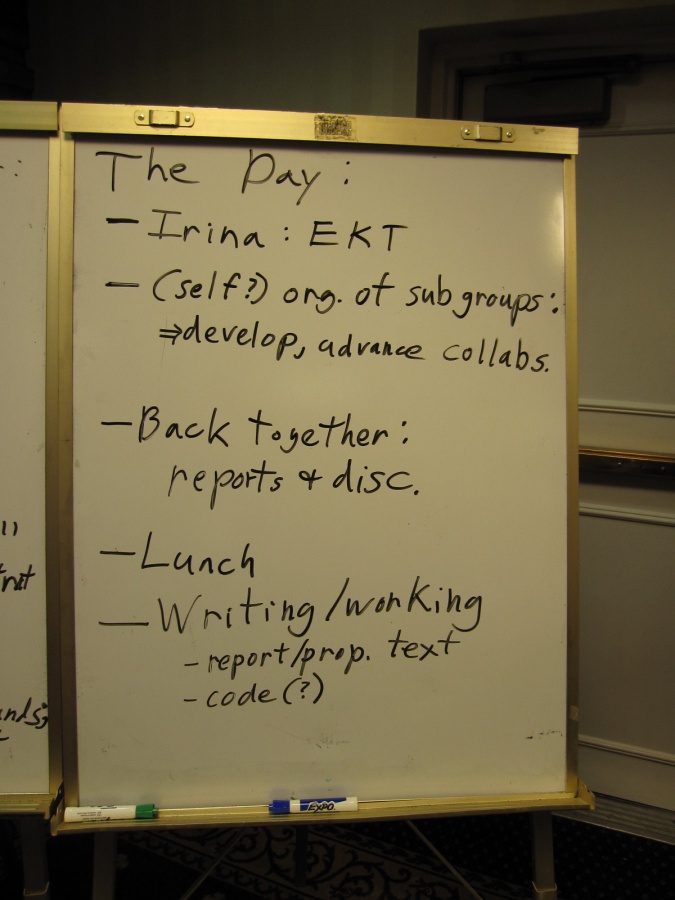 The Day:
— Irina: EKT
— (self?) org. of subgroups:
⇒develop, advance collabs.
— Back together:
reports & disc.
— Lunch
— Writing/working
- report/prop. text
- code(?)
EXPO